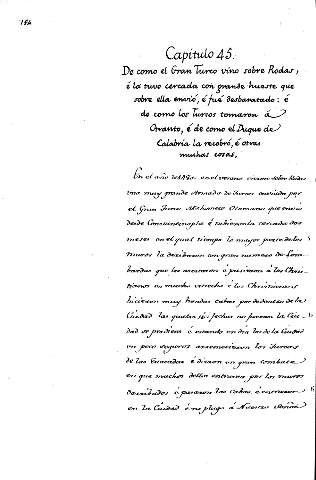 154
Capitulo 45.
De como el Gran Turco vino sobre Rodas,
é la tuvo cercada con grande hueste que
sobre ella envió, é fué desbaratado: é
de como los Turcos tomaron á
Otranto, é de como el Duque de
Calabria la recobró, é otras
muchas cosas.
En el año de 1480 en el verano vino sobre Rodas
una muy grande armada de Turcos enviada por
el Gran Turco Mahometo Otomano que envió
desde Constantinopla é tubieronla cercada dos
meses en el qual tiempo la mayor parte de los
muros la derribaron con gran numero de Lom-
bardas que los asestaron é pusieron á los Chris-
tianos en mucho estrecho é los Christianos
hicieron muy hondas cabas por de dentro de la
Ciudad las quales si fechas no fueran la Ciu-
dad se perdiera é estando un dia los de la Ciudad
un poco seguros arremetieron los Turcos
de las Estancias é dieron un gran combate
en que muchos dellos entraron por los muros
derribados é pasaron las cabas, é entraron
en la Ciudad é no plugo á Nuestro Señor